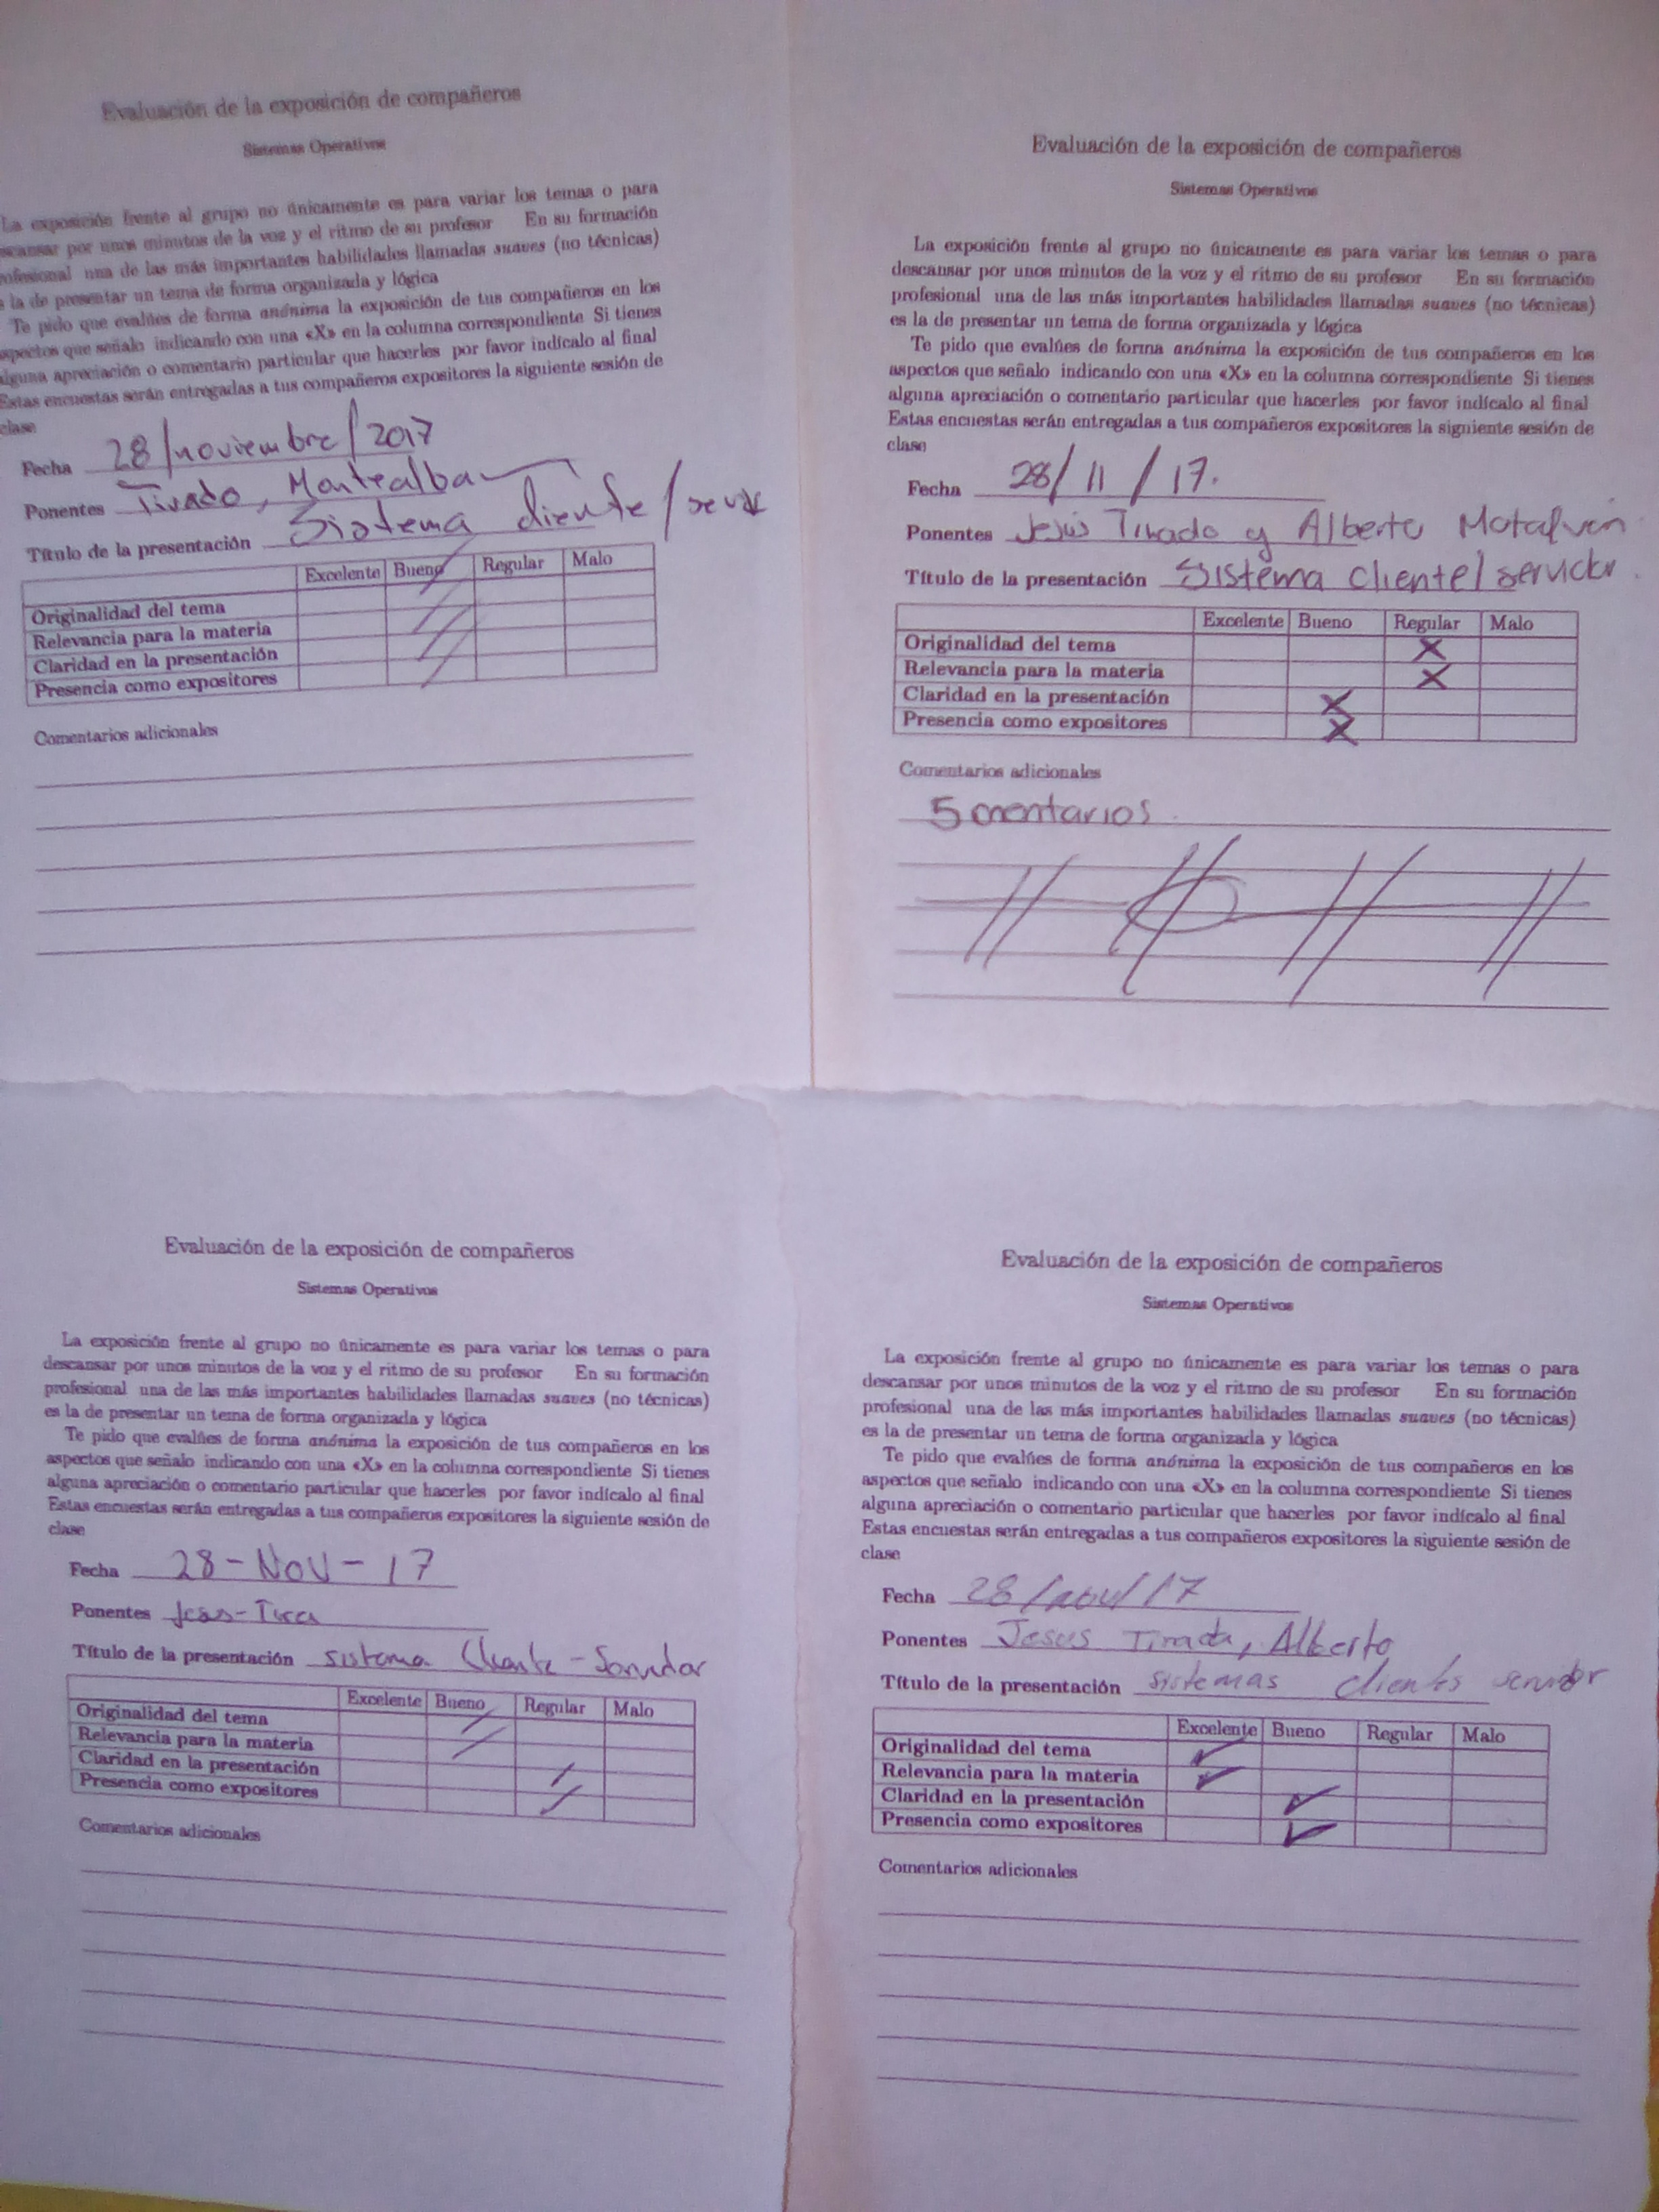 Evaluación de la exposición de compañeros
Sistemas Operativos
La exposición frente al grupo no únicamente es para variar los temas o para
escansar por unos minutos de la voz y el ritmo de su profesor En su formación
ofesional una de las más importantes habilidades llamadas suaves (no técnicas)
s la de presentar un tema de forma organizada y lógica
Te pido que evalúes de forma anónima la exposición de tus compañeros en los
spectos que señalo indicando con una «X» en la columna correspondiente Si tienes
alguna apreciación o comentario particular que hacerles por favor indícalo al final
Estas encuestas serán entregadas a tus compañeros expositores la siguiente sesión de
clase
Fecha 28/noviembre/2017
Ponentes Tirado, Montealban
Título de la presentación Sistema cliente/
Excelente Bueno Regular Malo
Originalidad del tema /
Relevancia para la materia /
Claridad en la presentación /
Presencia como expositores /
Comentarios adicionales
Evaluación de la exposición de compañeros
Sistemas Operativos
La exposición frente al grupo no únicamente es para variar los temas o para
descansar por unos minutos de la voz y el ritmo de su profesor En su formación
profesional una de las más importantes habilidades llamadas suaves (no técnicas)
es la de presentar un tema de forma organizada y lógica
Te pido que evalúes de forma anónima la exposición de tus compañeros en los
aspectos que señalo indicando con una «X» en la columna correspondiente Si tienes
alguna apreciación o comentario particular que hacerles por favor indícalo al final
Estas encuestas serán entregadas a tus compañeros expositores la siguiente sesión de
clase
Fecha 28/11/17.
Ponentes Jesús Tirado y Alberto
Título de la presentación Sistema cliente/servidor.
Excelente Bueno Regular Malo
Originalidad del tema X
Relevancia para la materia X
Claridad en la presentación X
Presencia como expositores X
Comentarios adicionales
5 mentarios.
Evaluación de la exposición de compañeros
Sistemas Operativos
La exposición frente al grupo no únicamente es para variar los temas o para
descansar por unos minutos de la voz y el ritmo de su profesor En su formación
profesional una de las más importantes habilidades llamadas suaves (no técnicas)
es la de presentar un tema de forma organizada y lógica
Te pido que evalúes de forma anónima la exposición de tus compañeros en los
aspectos que señalo indicando con una «X» en la columna correspondiente Si tienes
alguna apreciación o comentario particular que hacerles por favor indícalo al final
Estas encuestas serán entregadas a tus compañeros expositores la siguiente sesión de
clase
Fecha 28-NOV-17
Ponentes
Título de la presentación sistema Cliente-Servidor
Excelente Bueno Regular Malo
Originalidad del tema /
Relevancia para la materia /
Claridad en la presentación /
Presencia como expositores /
Comentarios adicionales
Evaluación de la exposición de compañeros
Sistemas Operativos
La exposición frente al grupo no únicamente es para variar los temas o para
descansar por unos minutos de la voz y el ritmo de su profesor En su formación
profesional una de las más importantes habilidades llamadas suaves (no técnicas)
es la de presentar un tema de forma organizada y lógica
Te pido que evalúes de forma anónima la exposición de tus compañeros en los
aspectos que señalo indicando con una «X» en la columna correspondiente Si tienes
alguna apreciación o comentario particular que hacerles por favor indícalo al final
Estas encuestas serán entregadas a tus compañeros expositores la siguiente sesión de
clase
Fecha 28/nov/17
Ponentes Jesus Tirado, Alberto
Título de la presentación sistemas clientes servidor
Excelente Bueno Regular Malo
Originalidad del tema ✓
Relevancia para la materia ✓
Claridad en la presentación ✓
Presencia como expositores ✓
Comentarios adicionales